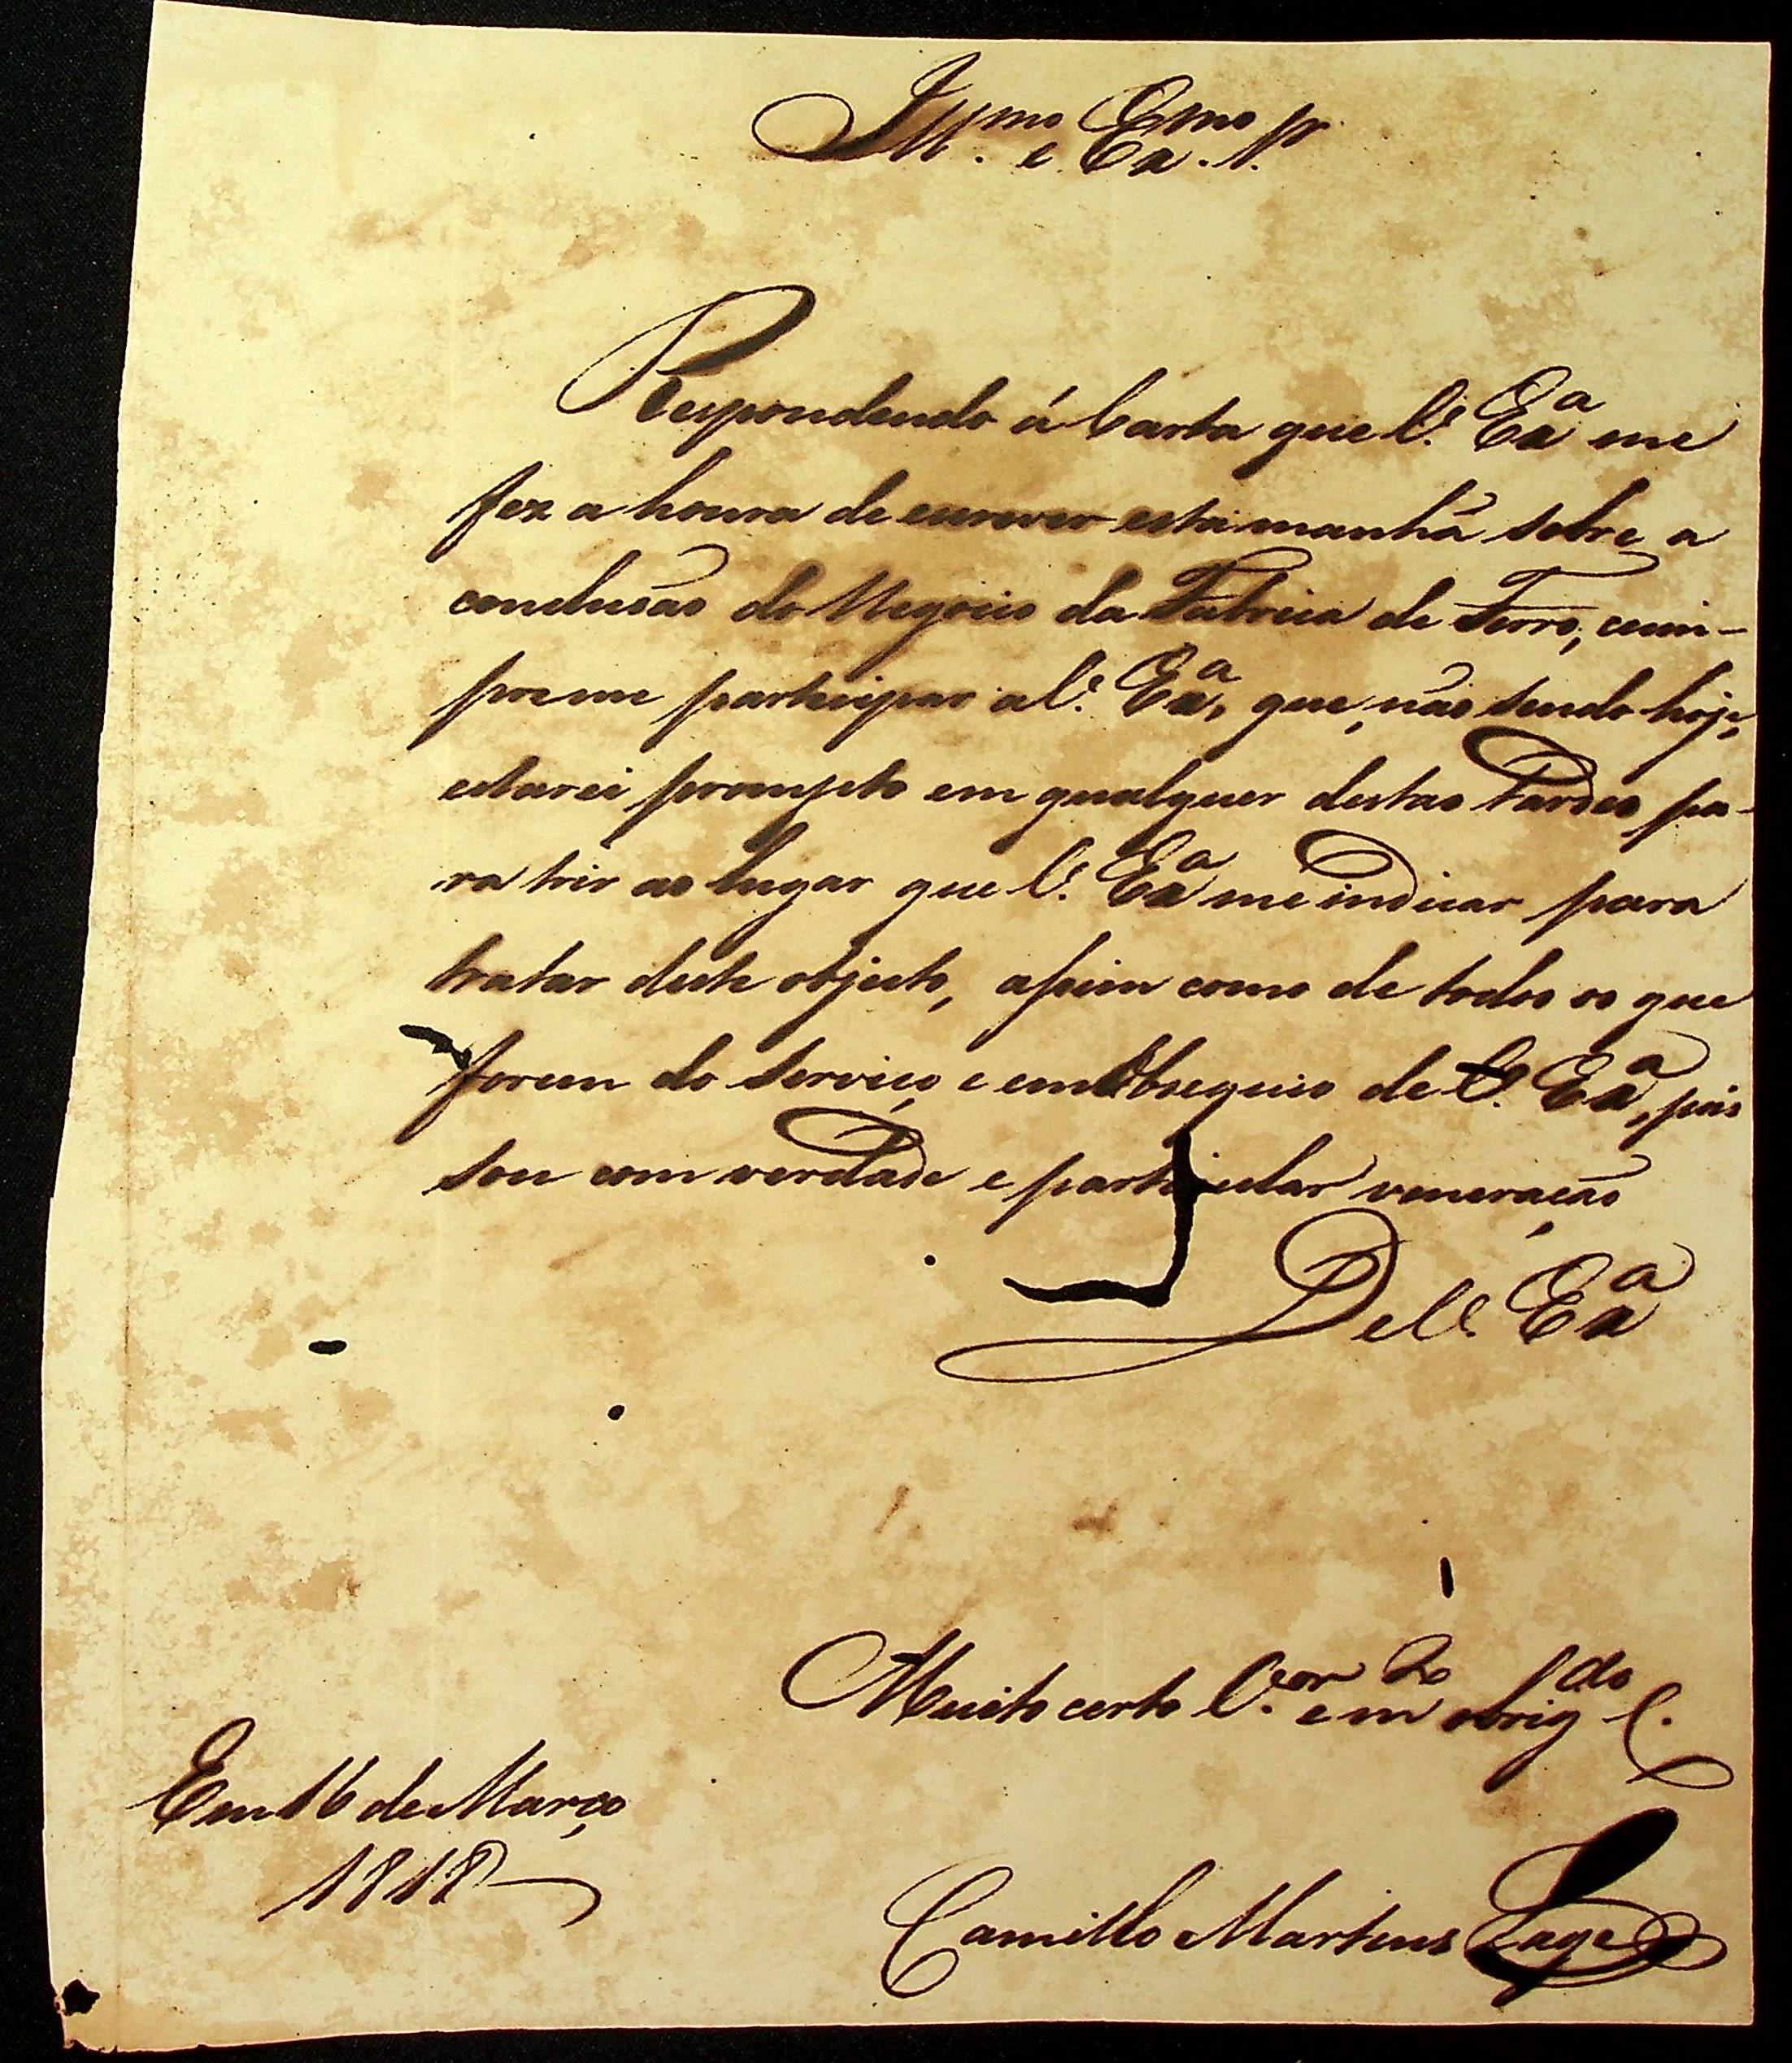 Ill.mo e Ex.mo Sr.
Respondendo á Carta que V. Exa me
fez a honra de escrever esta manhã sobre a
conclusão do Negocio da Fabrica de Ferro, cum-
pre me participar a V. Exa, que, não sendo hoje,
estarei prompto em qualquer destas Tardes pa-
ra hir ao lugar que V. Exa me indicar para
tratar deste objecto, assim como de todos os que
forem do serviço e em Obsequio de V. Exa, pois
sou com verdade e particular veneração
De V. Exa
Muito certo V.or e m.to obrig.do C.
Em 16 de Março
1818
Camillo Martins Lage